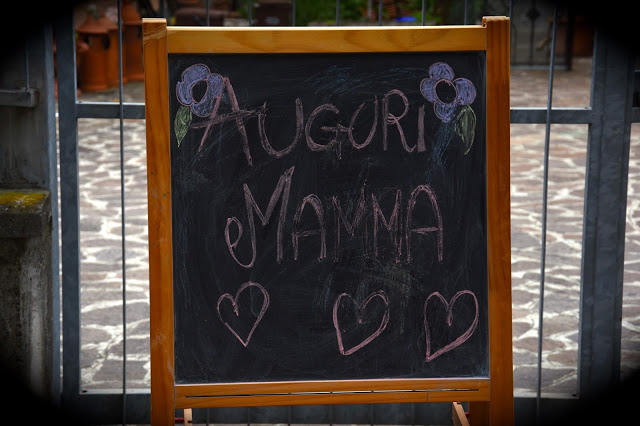 AUGURI
MAMMA